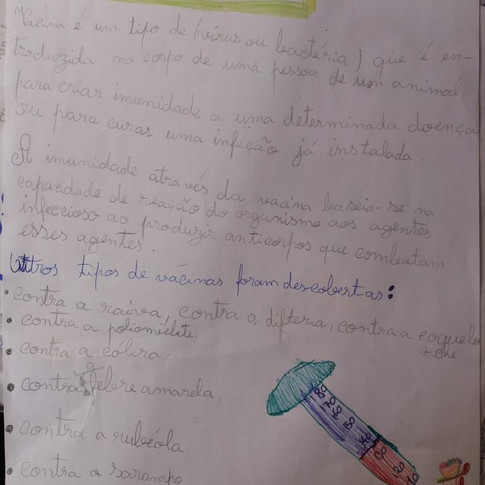 Vacina é um tipo de (vírus ou bactéria) que é in-
troduzida no corpo de uma pessoa de um animal
para criar imunidade a uma determinada doença
ou para curar uma infeção já instalada.
A imunidade através da vacina baseia-se na
capacidade de reação do organismo aos agentes
infeccioso ao produzir anticorpos que combatam
esses agentes.
Outros tipos de vácinas foram descobertas:
• contra a raiva, contra a difteria, contra a coquelu
che
• contra a poliomiélite.
• contra a cólera
• contra febre amarela,
• contra a rubéola
• contra o sarampo